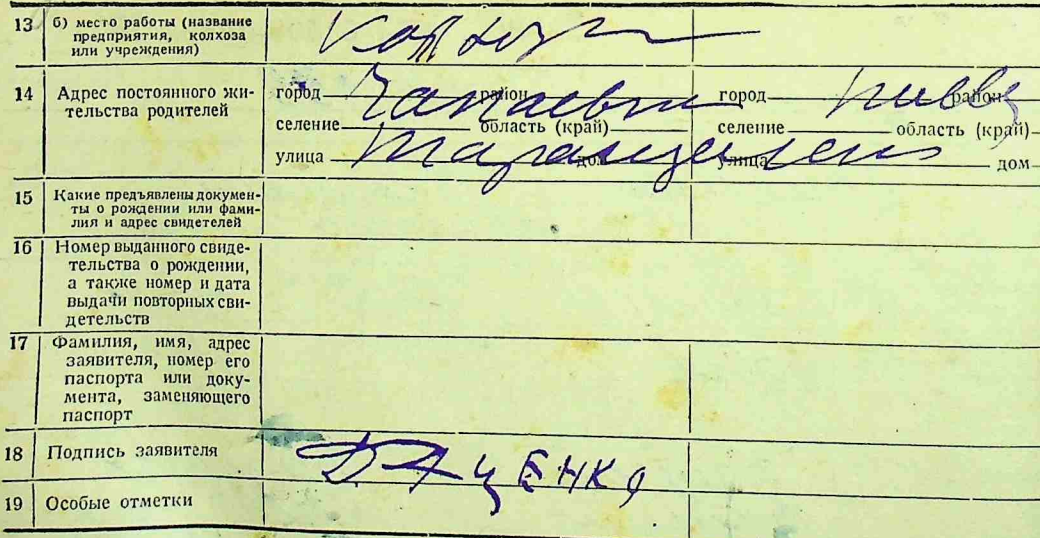 13 б) место работы (название
предприятия, колхоза
или учреждения)
колхоз
14 Адрес постоянного жи-
тельства родителей
город район город район
селение область (край) селение область (край)
улица дом улица дом
15 Какие предъявлены докумен-
ты о рождении или фами-
лия и адрес свидетелей
16 Номер выданного свиде-
тельства о рождении,
а также номер и дата
выдачи повторных сви-
детельств
17 Фамилия, имя, адрес
заявителя, номер его
паспорта или доку-
мента, заменяющего
паспорт
18 Подпись заявителя
ДАЦЕНКО
19 Особые отметки